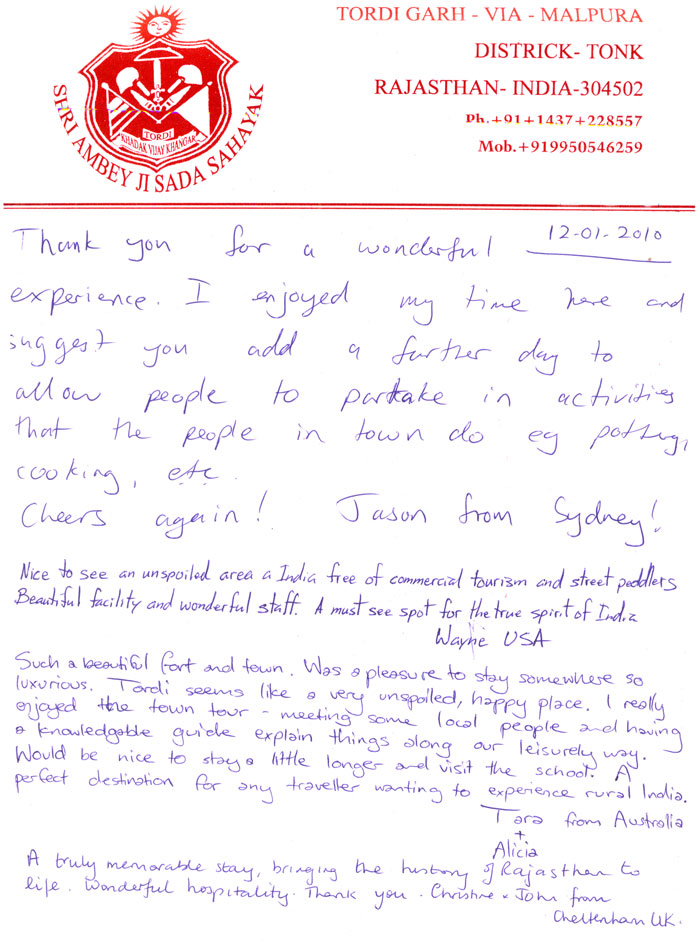 TORDI GARH - VIA - MALPURA
DISTRICK- TONK
RAJASTHAN- INDIA-304502
Ph.+91+1437+228557
Mob.+919950546259
TORDI
KHADAK VIJAY KHANGAR
SHRI AMBEY JI SADA SAHAYAK
12-01-2010
Thank you for a wonderful
experience. I enjoyed my time here and
suggest you add a further day to
allow people to partake in activities
that the people in town do eg pottery,
cooking, etc.
Cheers again! Jason from Sydney!
Nice to see an unspoiled area a India free of commercial tourism and street peddlers
Beautiful facility and wonderful staff. A must see spot for the true spirit of India
Wayne USA
Such a beautiful fort and town. Was a pleasure to stay somewhere so
luxurious. Tordi seems like a very unspoiled, happy place. I really
enjoyed the town tour - meeting some local people and having
a knowledgable guide explain things along our leisurely way.
Would be nice to stay a little longer and visit the school. A
perfect destination for any traveller wanting to experience rural India.
Tara from Australia
+
Alicia
A truly memorable stay, bringing the history of Rajasthan to
life. Wonderful hospitality. Thank you - Christine & John from
Cheltenham UK.